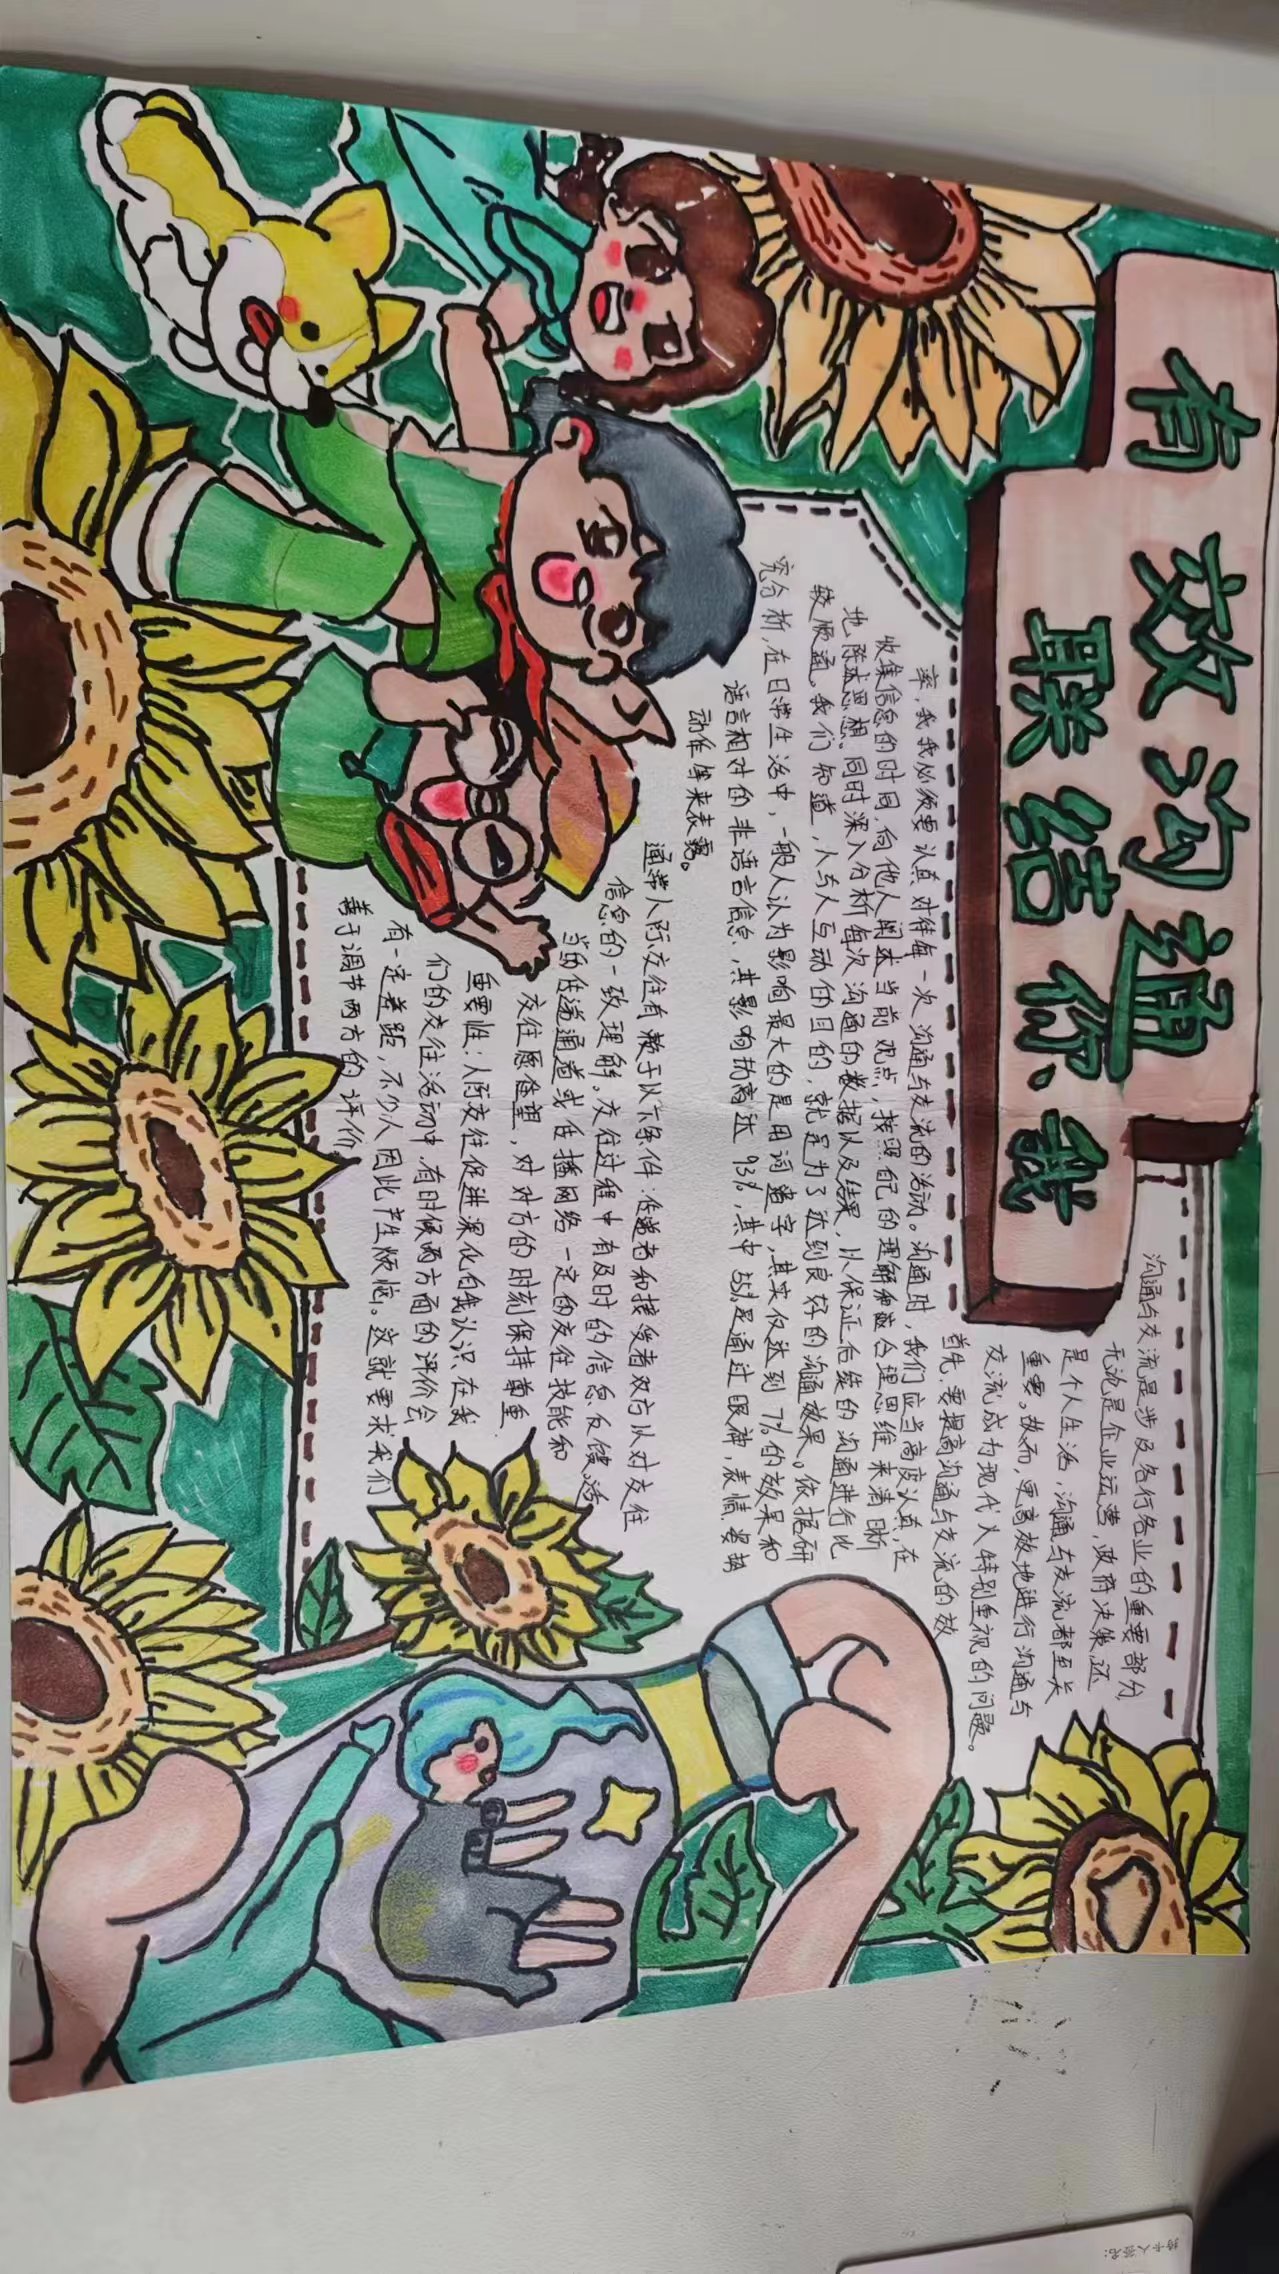 有效沟通
联结你、我
沟通与交流是涉及各行各业的重要部分,
无论是企业运营,政府决策,还
是个人生活,沟通与交流都至关
重要。故而,更高效地进行沟通与
交流成为现代人特别重视的问题。
首先,要提高沟通与交流的效
率,我我必须要认真对待每一次沟通与交流的活动。沟通时,我们应当高度认真,在
收集信息的时同,向他人阐述当前观点,按照自己的理解和合理思维来清晰
地陈述思想,同时深入分析每次沟通的数据以及结果,以保证后续的沟通进行比
较顺通。我们知道,人与人互动的目的,就是为了达到良好的沟通效果。依据研
究分析,在日常生活中,一般人认为影响最大的是用词遣字,其实仅达到7%的效果和
语言相对的非语言信息,其影响劫高达93%,其中55%是通过眼神,表情,姿势
动作等来表露。
通常人际交往有赖于以下条件:传递者和接受者双方从对交往
信息的一致理解,交往过程中有及时的信息反馈,适
当的传递通道或传播网络一定的交往技能和
交往愿望,对对方的时刻保持尊重.
重要性:人际交往促进深化自我认识在我
们的交往活动中,有时候两方面的评价会
有一定差距,不少人因此产生烦恼。这就要求我们
善于调节两方的评价
持卡人签名: